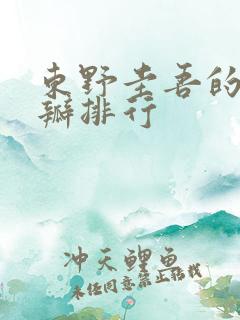 东野圭吾的
瓣排行
冲天鲤鱼
未经同意禁止转载